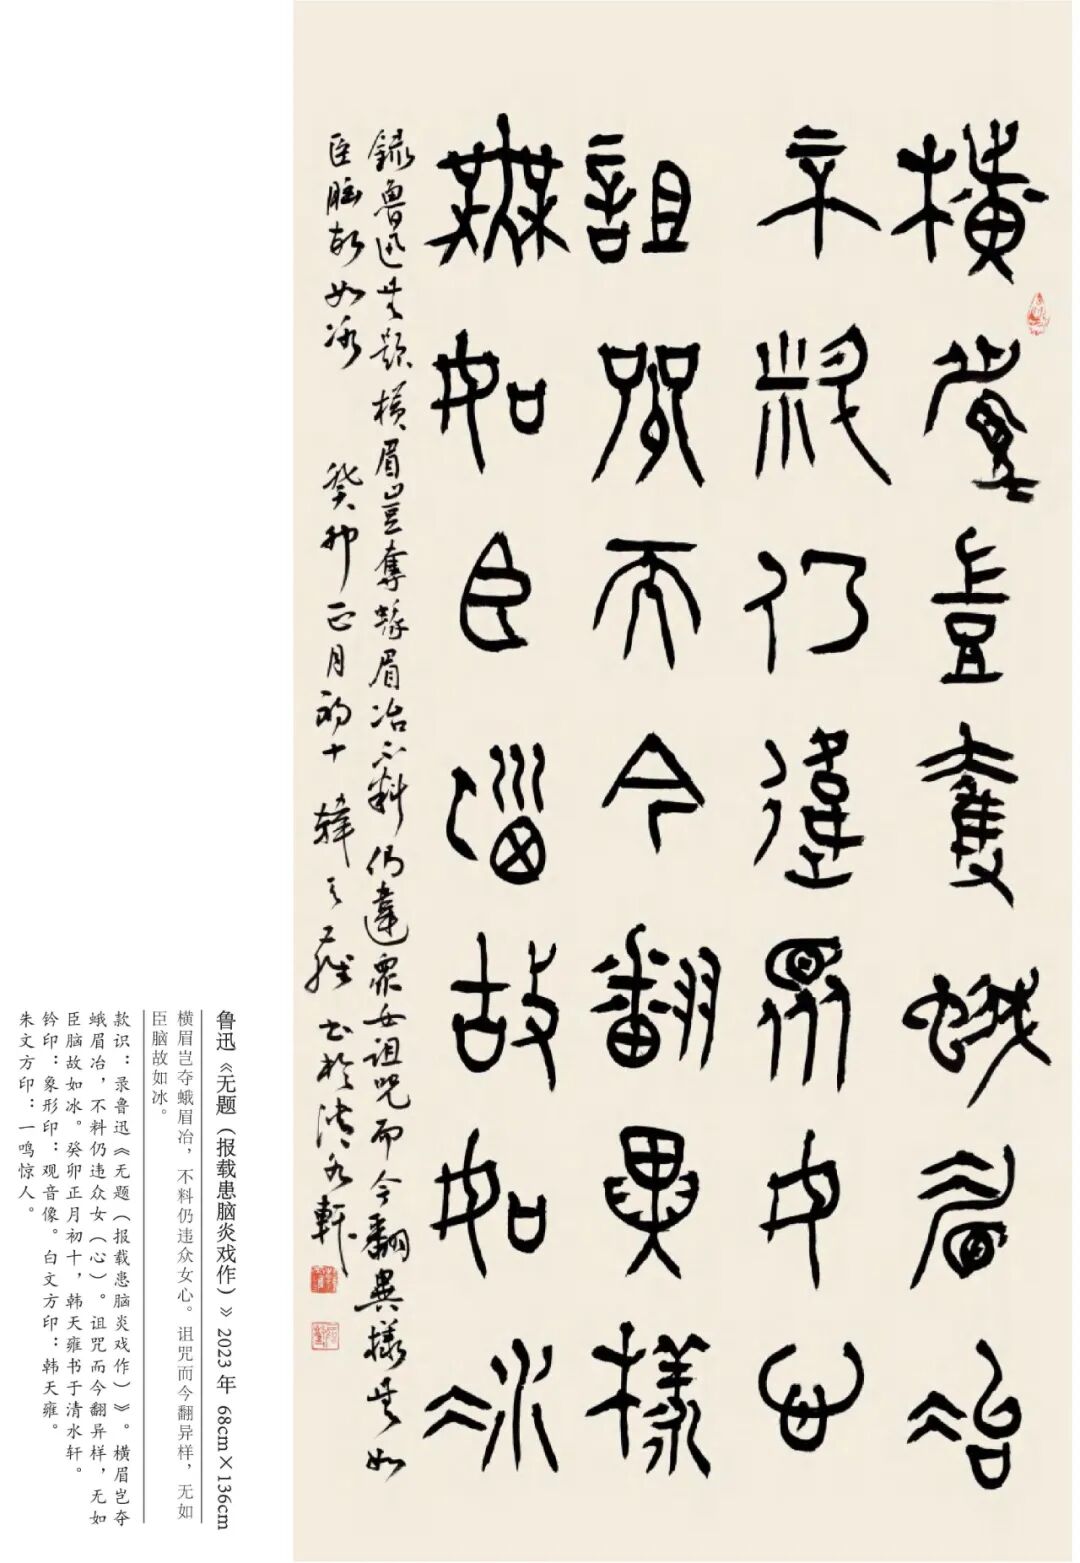 橫眉豈奪蛾眉冶
不料仍違眾女心
詛咒而今翻異樣
無如臣腦故如冰
錄魯迅无題橫眉豈奪蛾眉冶不料仍違眾女詛咒而今翻異樣无如
臣腦故如冰 癸卯正月初十韓天雍書於清水軒
鲁迅《无题（报载患脑炎戏作）》 2023 年 68cm×136cm
横眉岂夺蛾眉冶，不料仍违众女心。诅咒而今翻异样，无如
臣脑故如冰。
款识：录鲁迅《无题（报载患脑炎戏作）》。横眉岂夺
蛾眉冶，不料仍违众女（心）。诅咒而今翻异样，无如
臣脑故如冰。癸卯正月初十，韩天雍书于清水轩。
钤印：象形印：观音像。白文方印：韩天雍。
朱文方印：一鸣惊人。